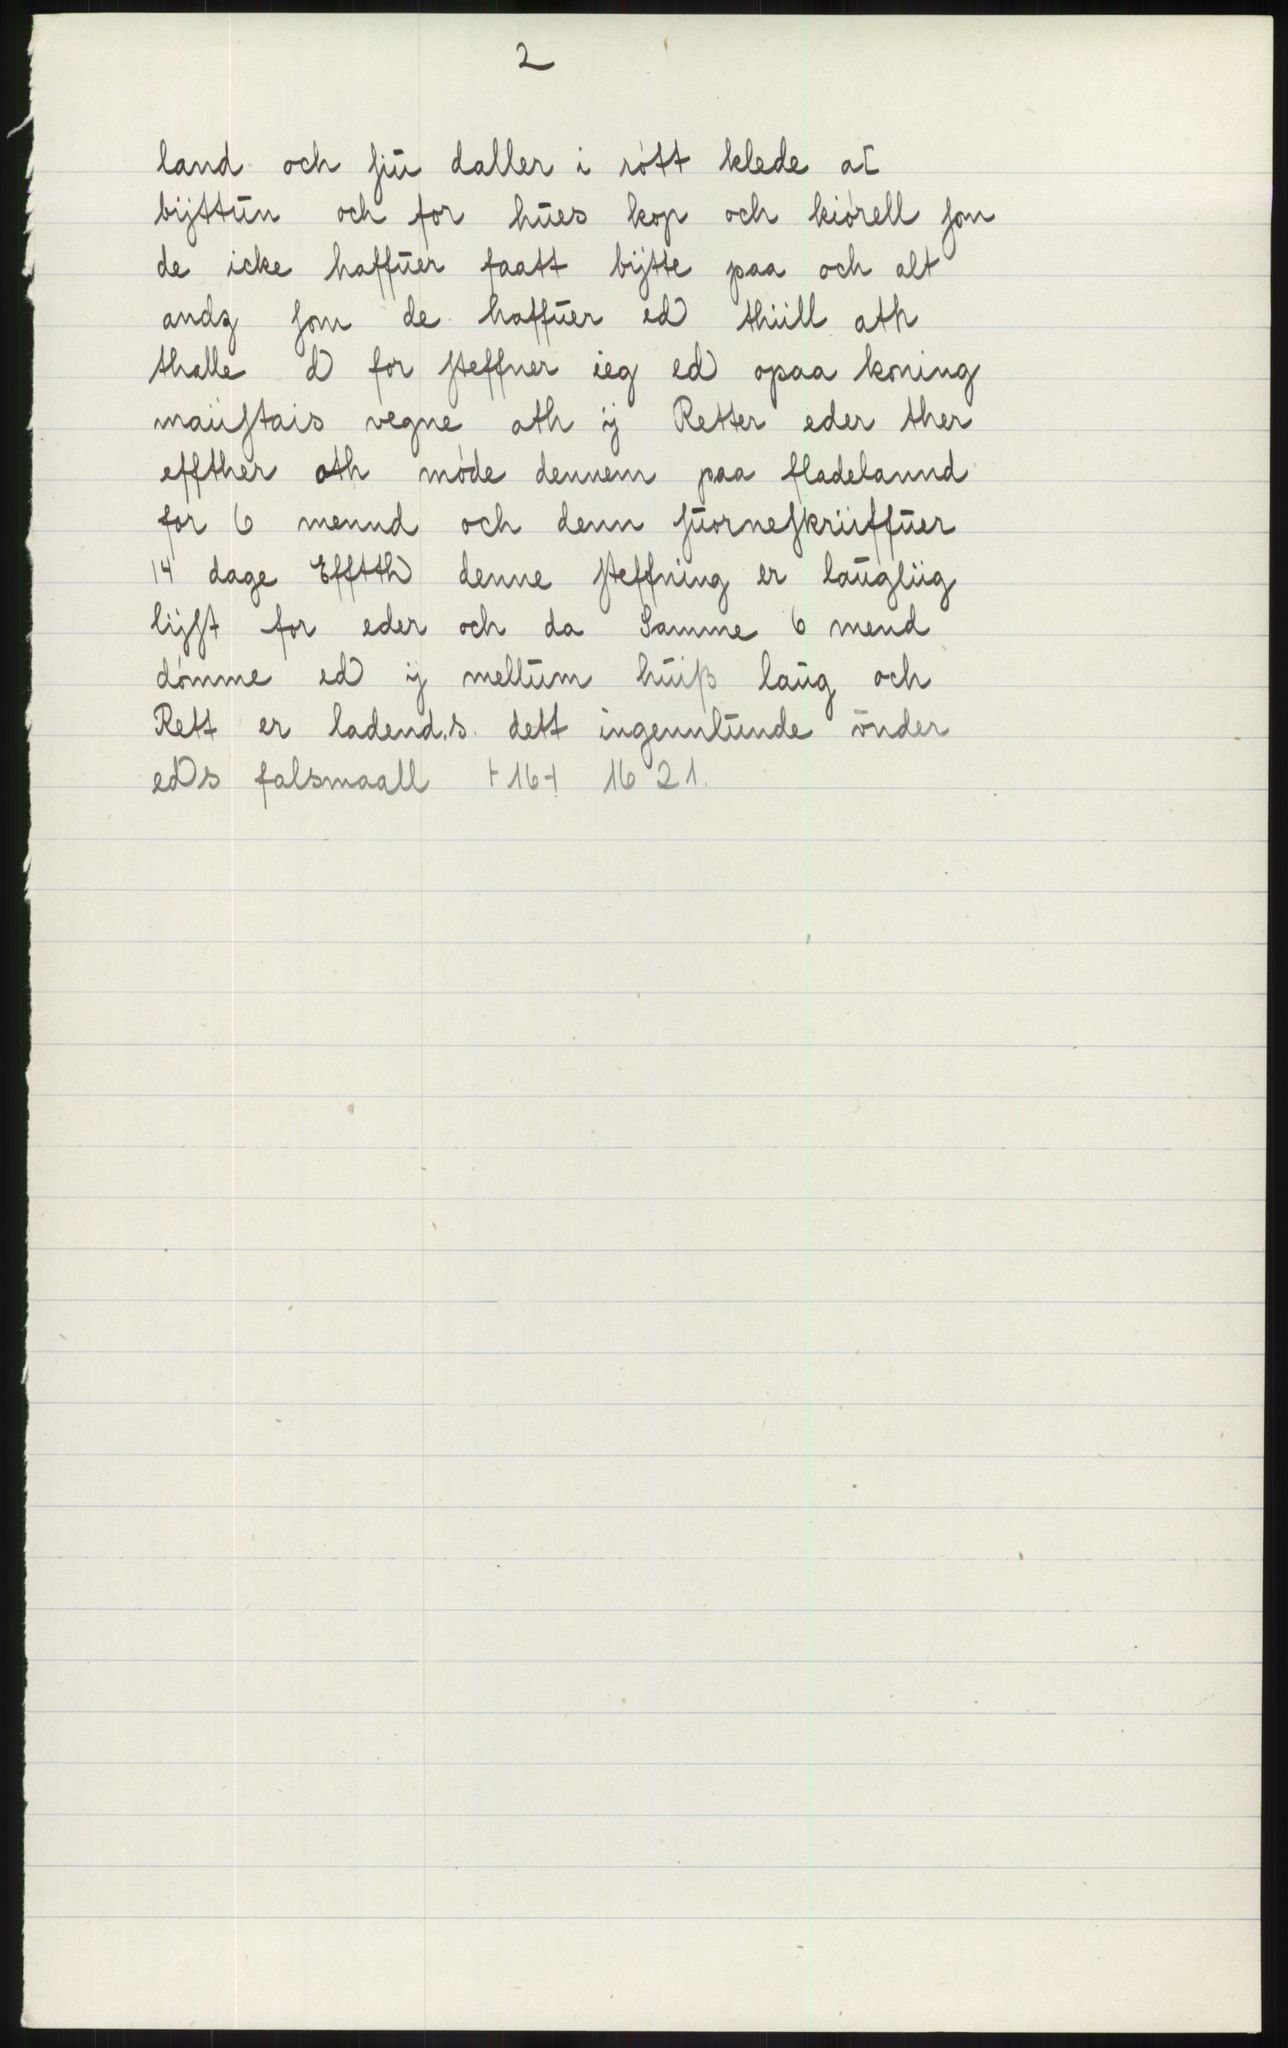 2
land och siu daller i rótt klede at
bijttūn och for hūes kop och kiórell som
de icke haffūer faatt bijtte paa och alt
andz som de haffūer ed thiill ath
thalle d for steffner ieg ed opaa koning
maiistais vegne ath ij Retter eder ther
effther ath móde dennem paa fladelannd
for 6 mennd och denn fūorneskriiffūer
14 dage Efftth denne steffning er laūgliig
lijst for eder och da Samme 6 mend
dómme ed ij mellūm hūiß laūg och
Rett er ladend.s. dett ingennlūnde ōnder
eds falsmaall +16+ 1621.